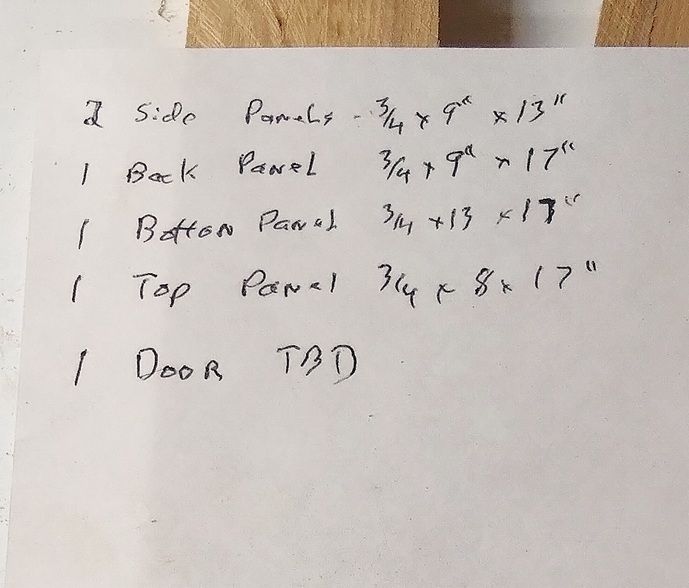 2 Side Panels - 3/4 x 9" x 13"
1 Back Panel 3/4 x 9" x 17"
1 Botton Panel 3/4 x 13 x 17"
1 Top Panel 3/4 x 8 x 17"
1 Door TBD